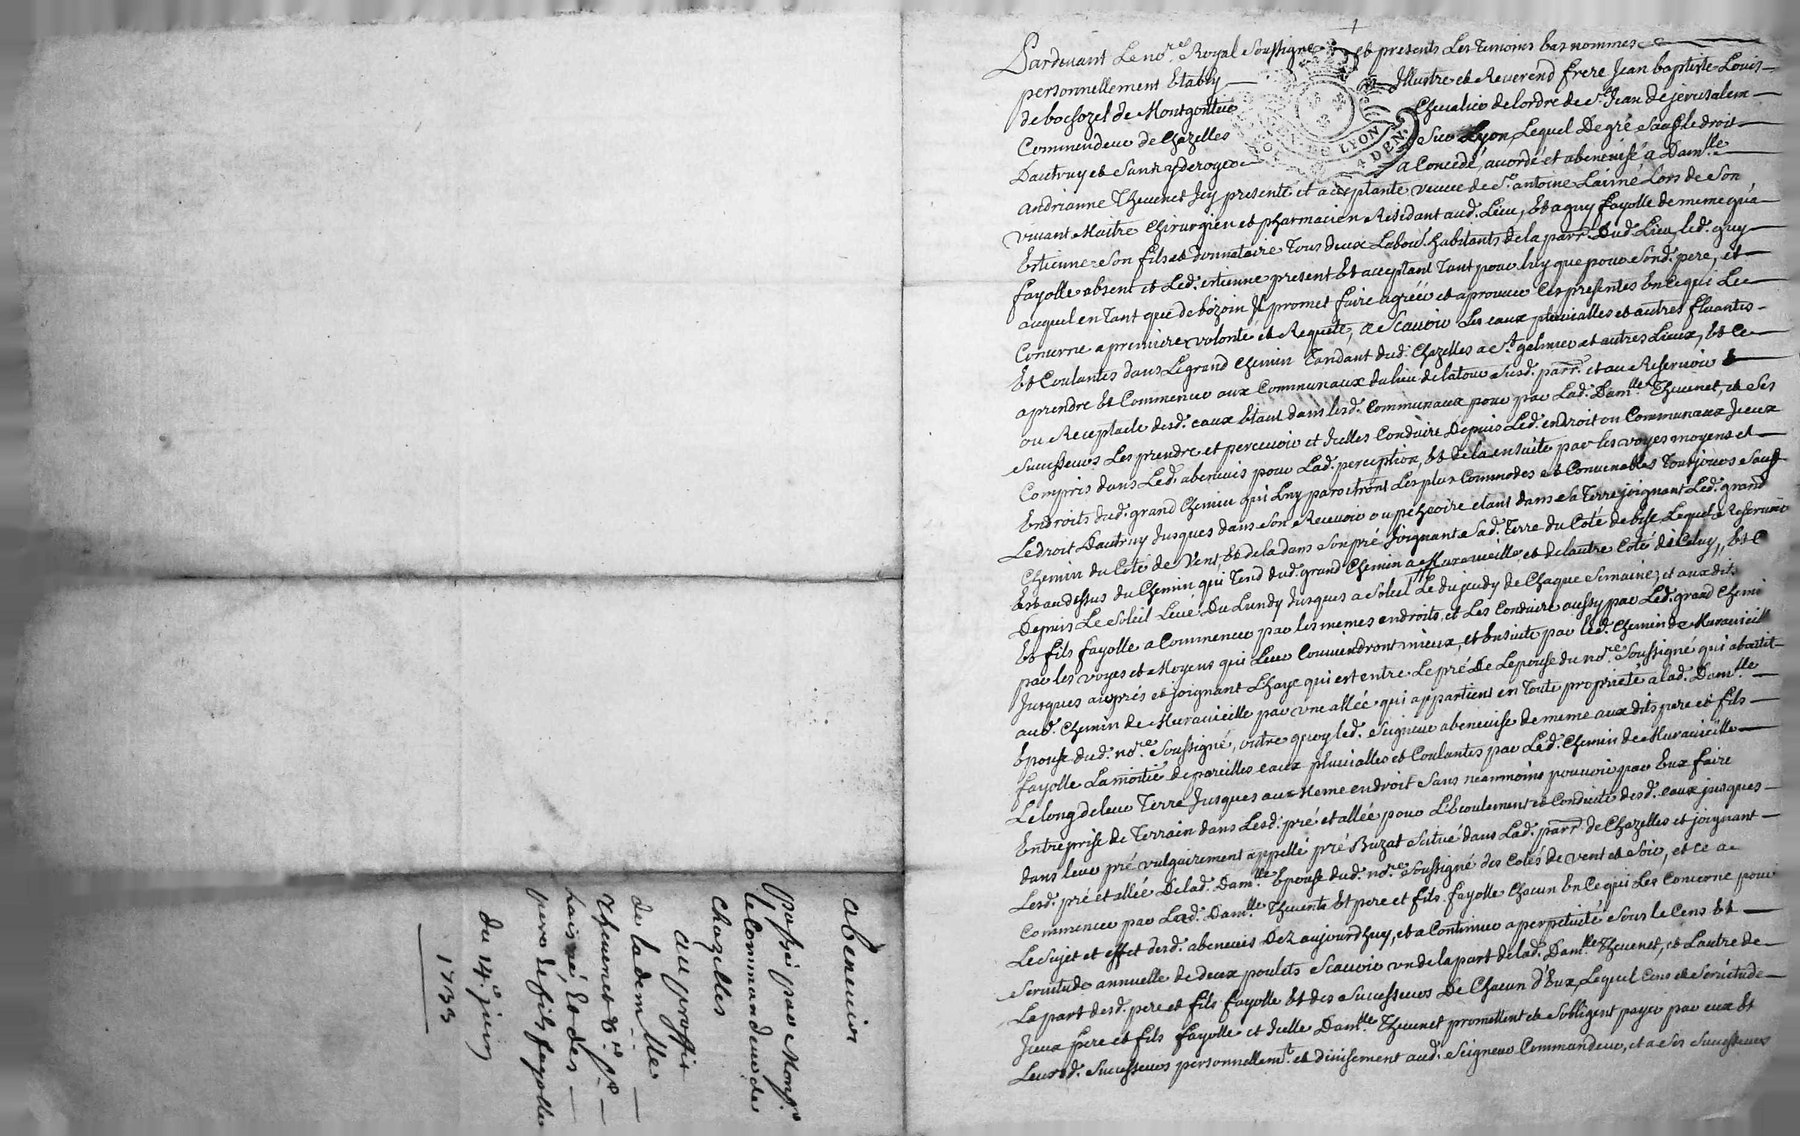 Pardevant Le no.re Royal Soussigné et presents Les Temoins bas nommés
personnellement Etably Illustre et Reverend frere Jean baptiste Louis
de bocsozel de Montgontier Chevalier de lordre de St. Jean de jerusalem
Commendeur de Chazelles Sur Lyon, Lequel De gré Sauf le droit
Dautruy et Sans y deroger a Concedé, accordé et abenevisé a Dam.lle
andrianne Thevenet Icy presente et acceptante veuve de Sr. antoine Lainné Lors de Son
vivant Maitre Chirurgien et pharmacien Residant aud. Lieu, Et a guy fayolle de meme qu'a
Estienne Son fils et donnataire Tous deux Labou.rs habitants de la parr. Dud. Lieu, led. guy
fayolle absent et Led. estienne present Et acceptant Tant pour luy que pour Sond. pere, et
auquel en Tant que de bezoin Il promet faire agréer et aprouver Ces presentes En Ce qui Le
Concerne a premiere volonté et Requete, a Scavoir Les eaux pluvialles et autres fluantes
Et Coulantes dans Le grand Chemin Tandant dud. Chazelles a St. galmier et autres Lieux, Et Ce
a prendre Et Commencer aux Communaux du lieu de latour Susd. parr. et au Reservoir
ou Receptacle desd. eaux Etant dans lesd. Communaux pour par Lad. Dam.lle Thevenet, et Ses
Successeurs Les prendre et percevoir et Icelles Conduire Depuis Led. endroit ou Communaux Iceux
Compris dans Led. abenevis pour Lad. perception, Et de la ensuite par les voyes moyens et
Endroits dud. grand Chemin qui Luy paroitront Les plus Commodes et Convenables Toutjours Sauf
Le droit Dautruy Jusques dans Son Recevoir ou pechoire etant dans Sa Terre joignant Led. grand
Chemin du Coté de Vent, Et de la dans Son pré Joignant Sad. Terre du Coté de bise Lequel Reservoir
Est au dessus du Chemin qui Tend dud. grand Chemin a Muravieille, et de lautre Coté de Celuy, Et C
Depuis Le Soleil Levé Du Lundy Jusques a Soleil Levé du jeudy de Chaque Semaine, et aux dits
Et fils fayolle a Commencer par les memes endroits, et Les Conduire aussy par Led. grand Chemi
par les voyes et Moyens qui Leur Conviendront mieux, et Ensuite par led. Chemin de Muravieill
Jusques auprés et joignant Lhaye qui est entre Le pré De Lepouse du no.re Soussigné qui aboutit
aud. Chemin de Muravieille par une allée qui appartient en Toute proprieté a lad. Dam.lle
Epouse dud. no.re Soussigné, outre quoy led. Seigneur abenevise de meme aux dits pere et fils
fayolle La moitié de pareilles eaux pluvialles et Coulantes par Led. Chemin de Muravieille
Le long de leur Terre Jusques au Meme endroit Sans neanmoins pouvoir par Eux faire
Entreprise de Terrain dans Lesd. pré et allée pour L'Ecoulement et Conduite desd. eaux jusques
dans leur pré vulgairement appellé pré Buzat Scitué dans Lad. parr. de Chazelles et joignant
Lesd. pré et allée De lad. Dam.lle Epouse dud. no.re Soussigné des Cotés de vent et Soir, et Ce a
Commencer par Lad. Dam.lle Thevenet Et pere et fils fayolle Chacun En Ce qui Les Concerne pour
Le Sujet et effet desd. abenevis Dez aujourdhuy, et a Continuer a perpetuité Sous le Cens Et
Servitude annuelle de deux poulets Scavoir un de la part de lad. Dam.lle Thevenet, et Lautre de
La part desd. pere et fils fayolle Et des Successeurs De Chacun d'Eux, Lequel Cens et Servitude
Iceux pere et fils fayolle et Icelle Dam.lle Thevenet promettent et S'obligent payer par eux Et
Leursd. Successeurs personnellem.t et divisement aud. Seigneur Commandeur, et a Ses Successeurs
LYON
4 DEN.
abenevis
passé par Monsr.
le Commandeur de
Chazelles
au proffit
de la dem.lle
Thevenet Ve. Sr.
Lainné, Et des
pere & fils fayolle
du 14e. juin
1733